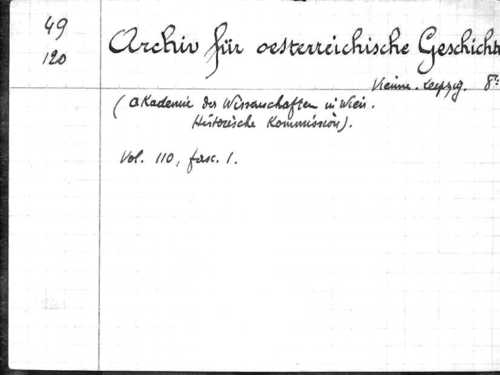 49
120
Archiv für oesterreichische Geschichte
Vienne. Leipzig. 8°
(Akademie der Wissenschaften in Wien.
Historische Kommission).
Vol. 110, fasc. 1.